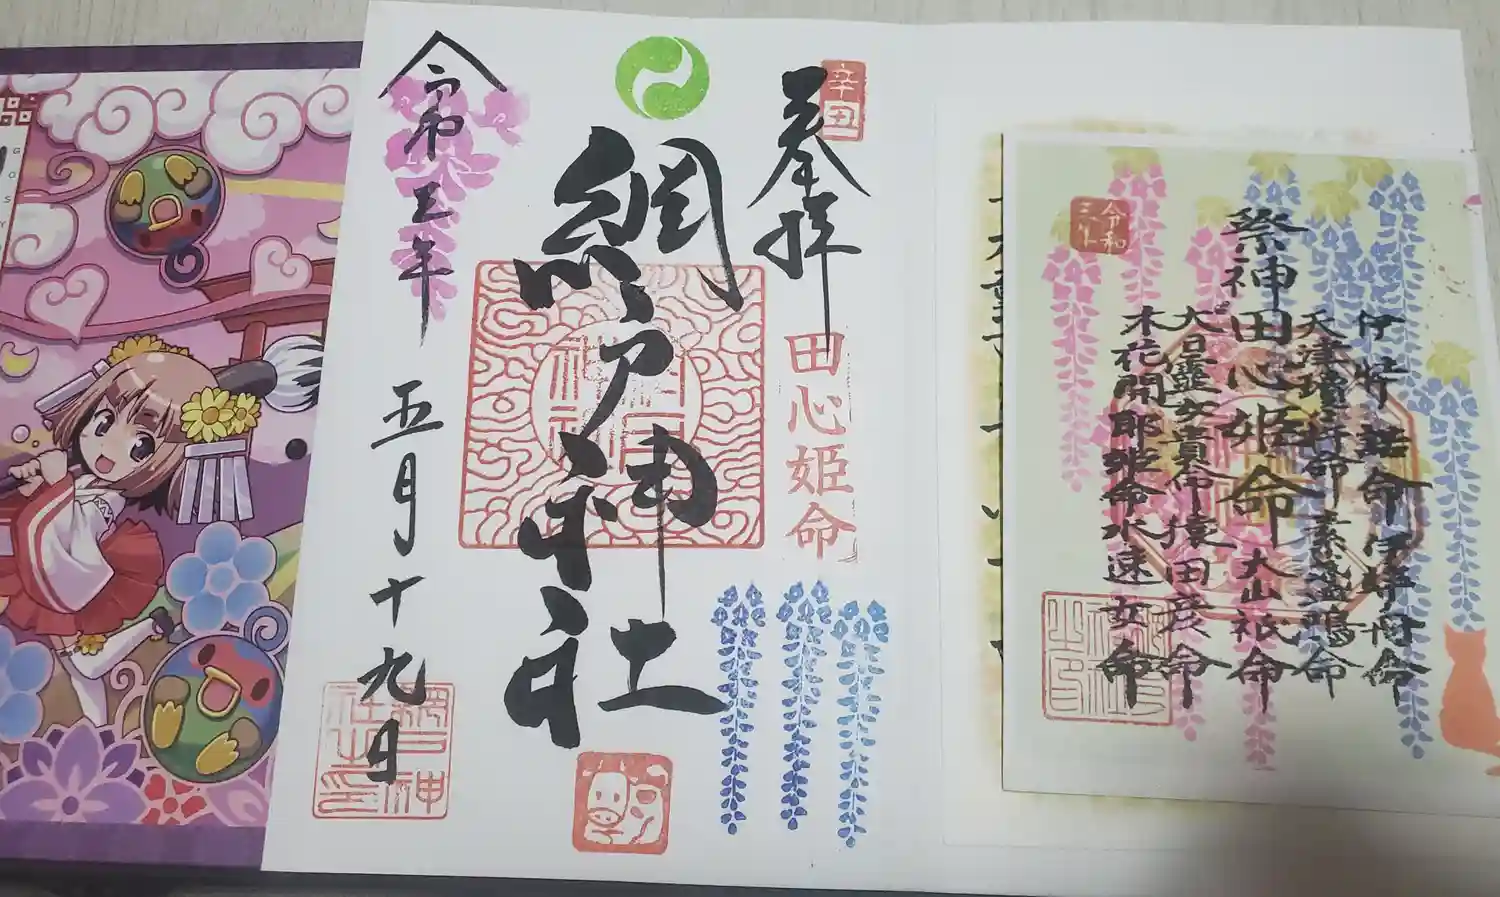 辛丑
奉拝
田心姫命
網戸神社
令和三年
五月十九日
網戸神
社之印
令和
三年
祭神
田心姫命
伊弉諾命 伊弉冊命
天津瓊々杵命 素盞鳴命
大山祇命
大日霊女貴命 猿田彦命
木花開耶姫命 水速女命